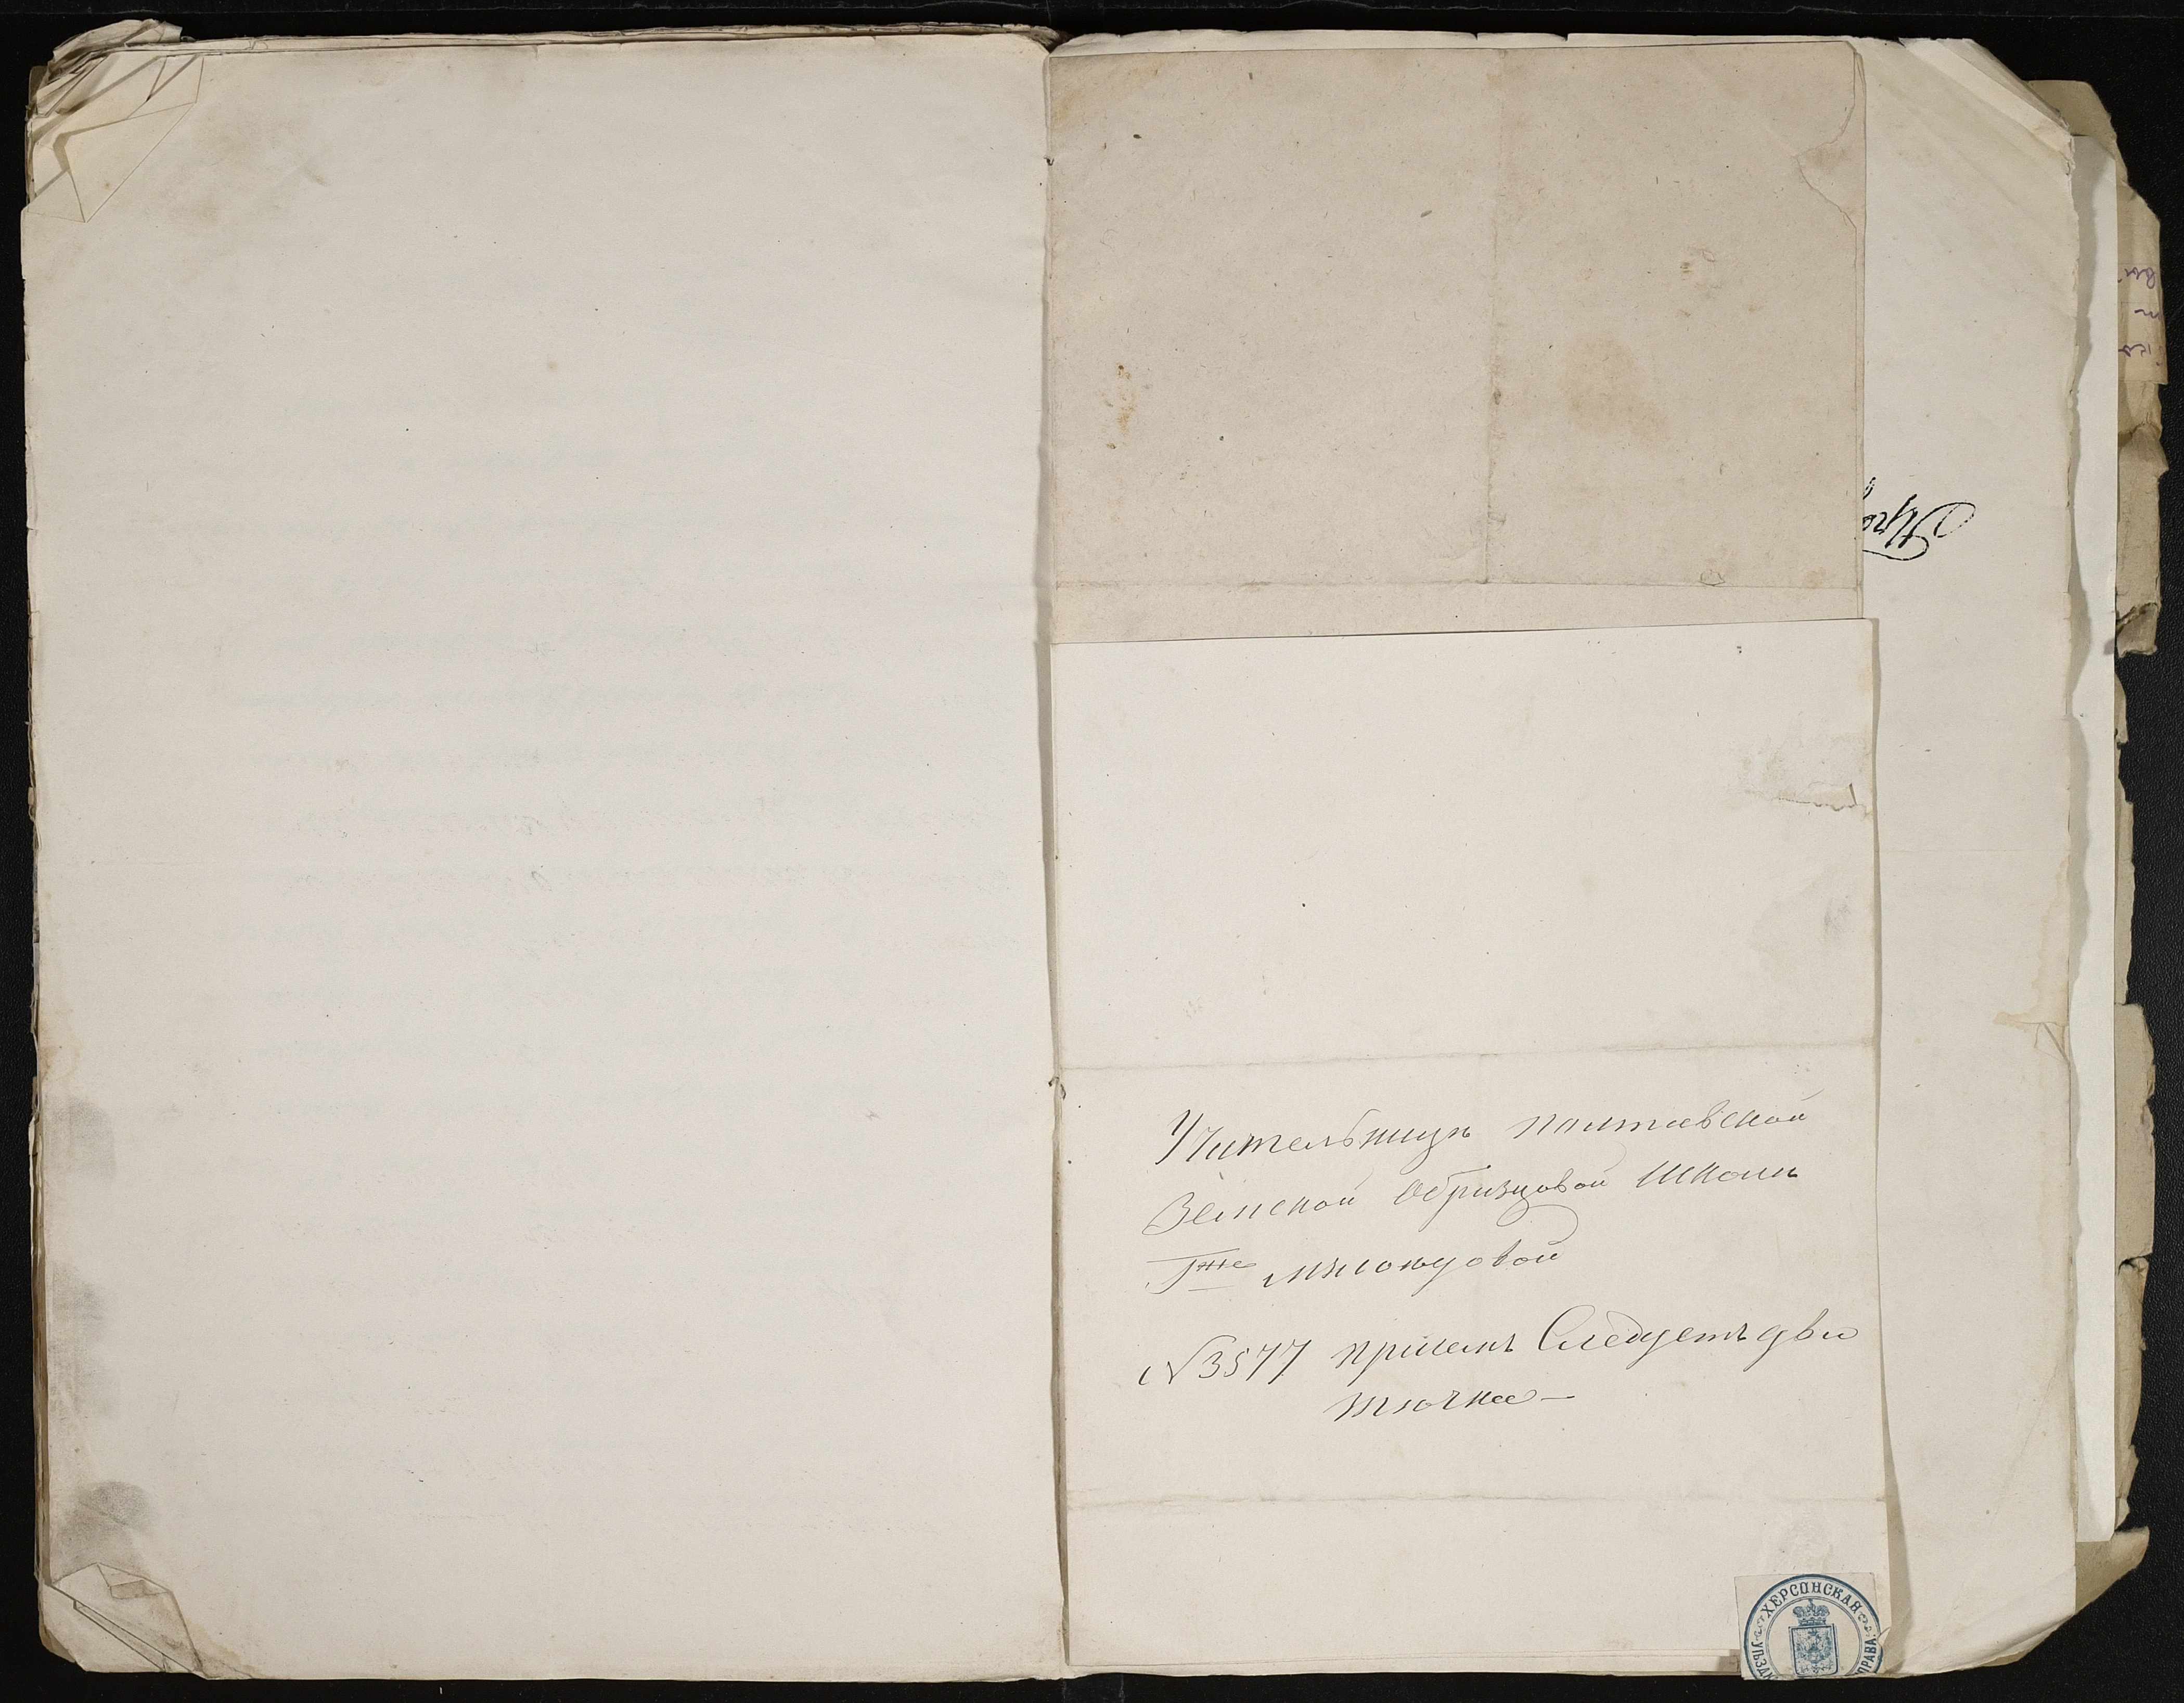 Учительницѣ Полтавской
Земской Образцовой Школѣ
Гже
№ 3577 причемъ Следуетъ два
ХЕРСОНСКАЯ
УѢЗДН
ПРАВА